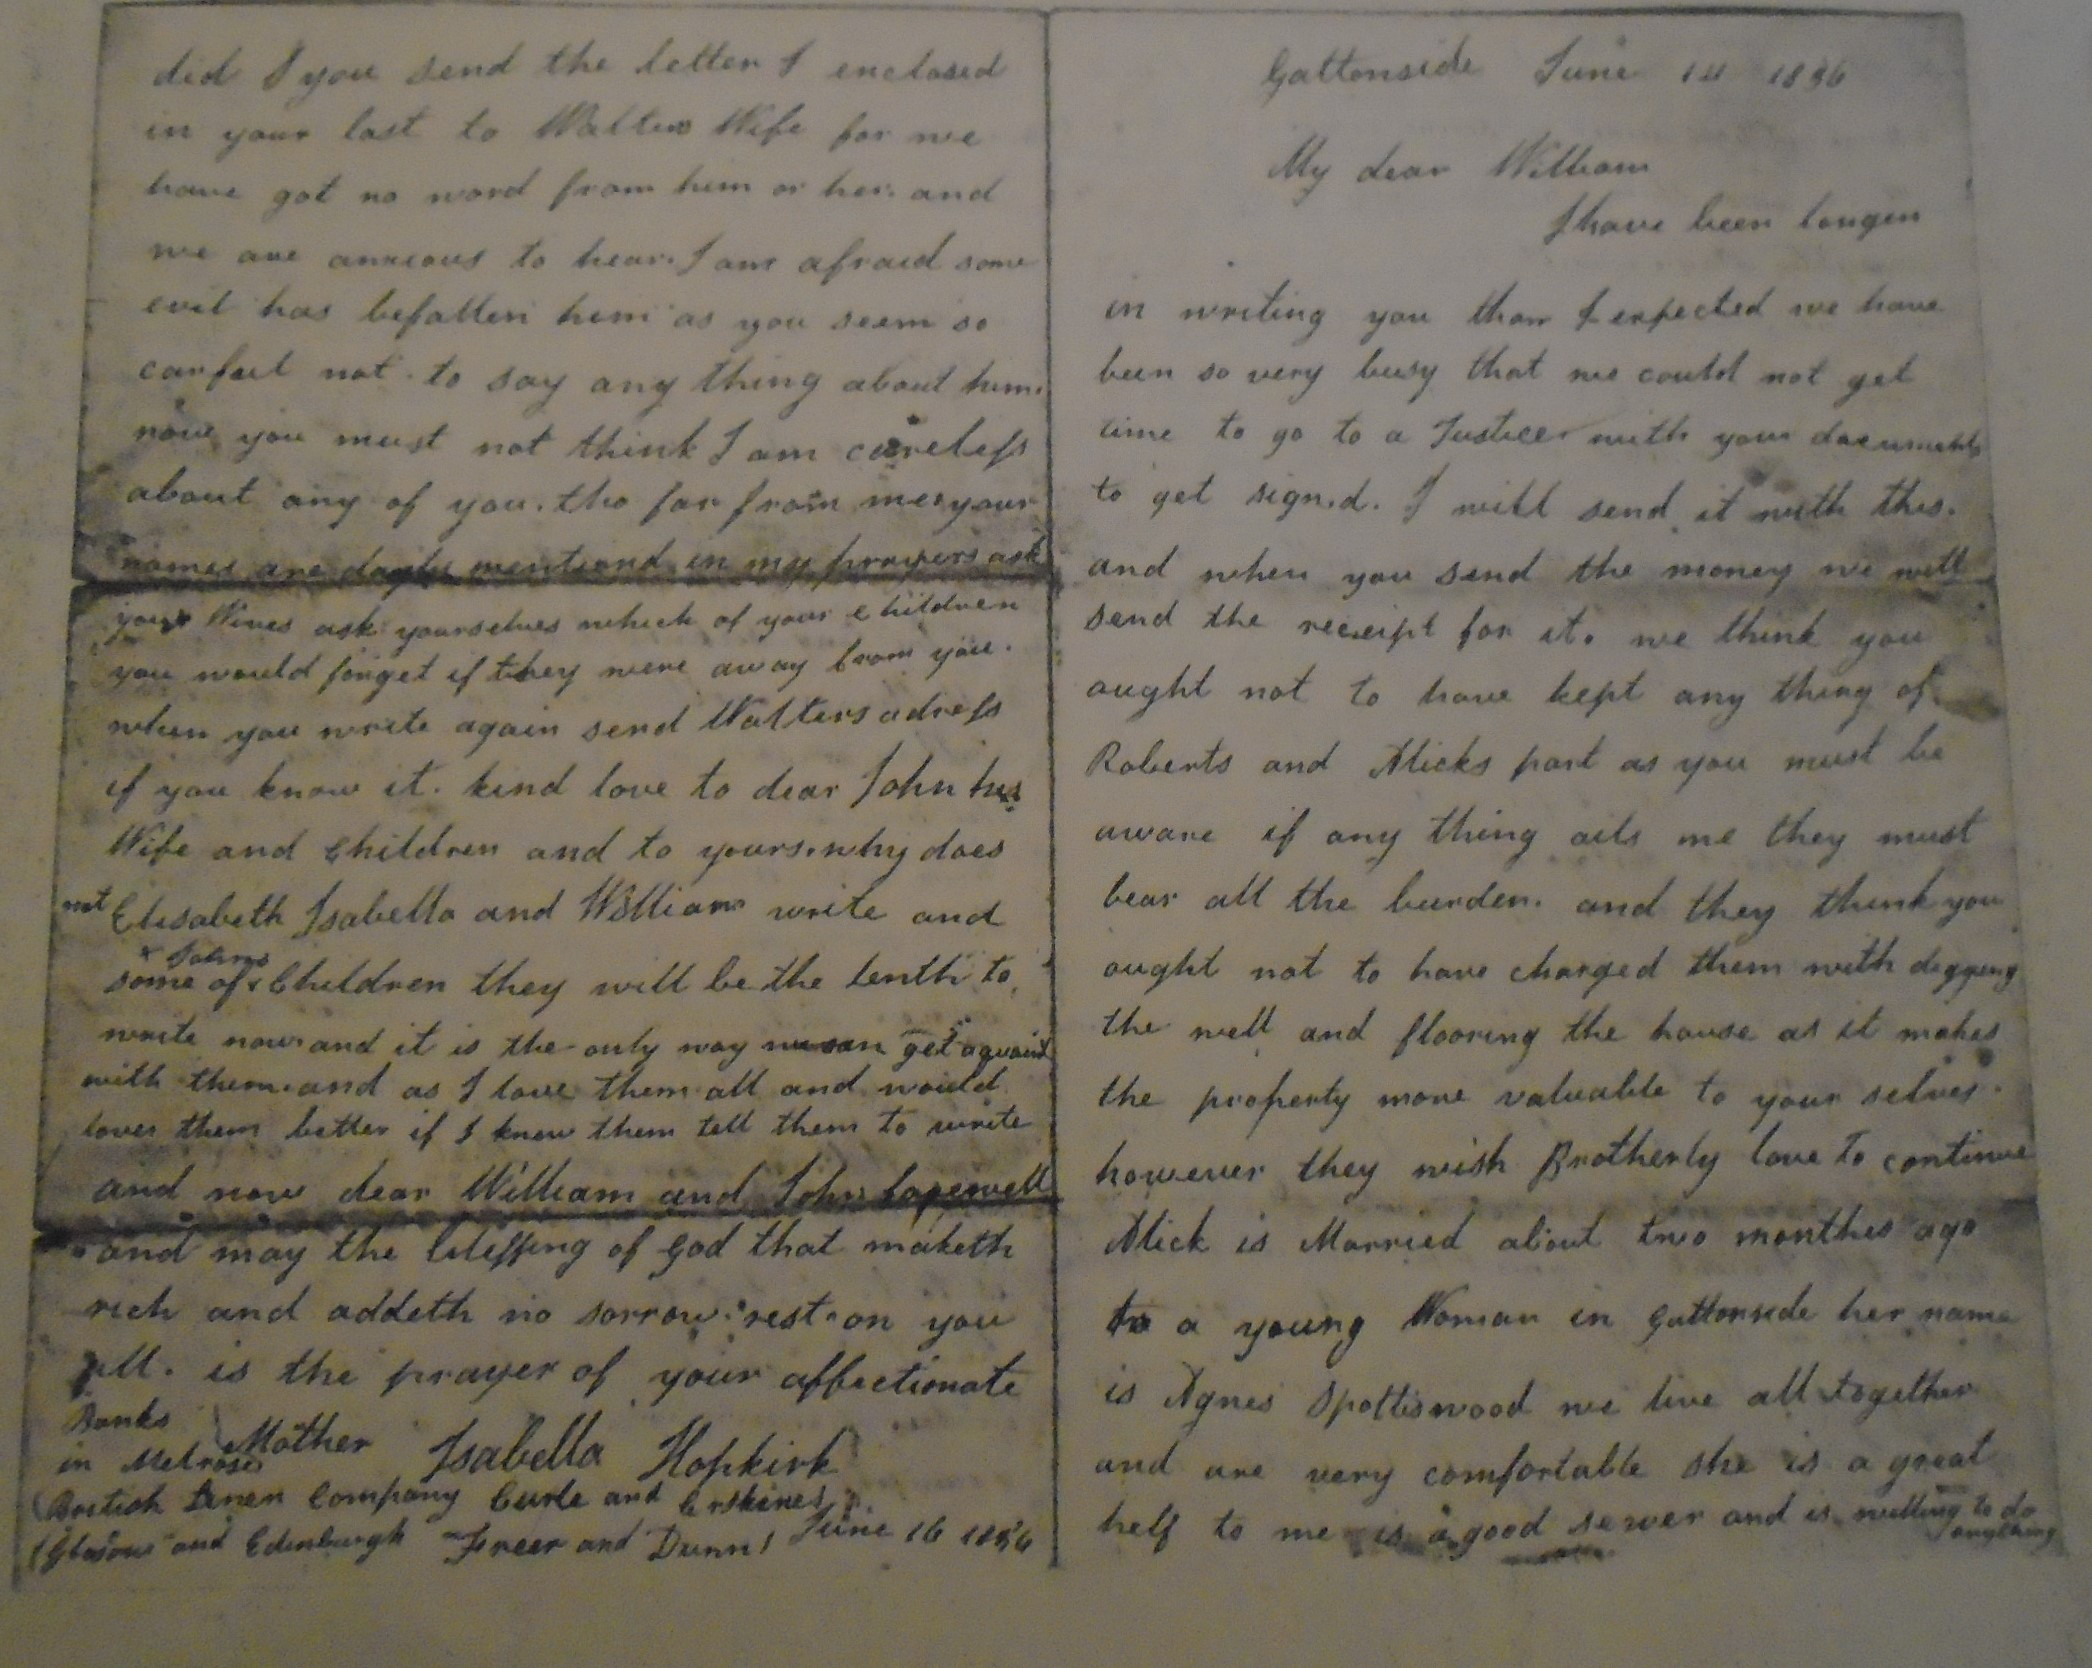 Gattonside June 14 1856
My dear William
I have been longer
in writing you than I expected we have
been so very busy that we could not get
time to go to a Justice with your documents
to get signd. I will send it with this.
and when you send the money we will
send the receipt for it. we think you
ought not to have kept any thing of
Roberts and Alicks part as you must be
aware if any thing ails me they must
bear all the burden. and they think you
ought not to have charged them with digging
the well and flooring the house as it makes
the property more valuable to your selves.
however they wish Brotherly love to continue
Alick is Married about two monthes ago
to a young Woman in Gattonside her name
is Agnes Spottiswood we live all together
and are very comfortable she is a great
help to me is a good sewer and is willing to do
anything
did you send the letter I enclosed
in your last to Walters Wife for we
have got no word from him or her. and
we are anxious to hear. I am afraid some
evil has befallen him as you seem so
carful not to say any thing about him.
now you must not think I am careless
about any of you. tho far from me your
names are dayly mentiond in my prayers ask
your Wives ask yourselves which of your children
you would forget if they were away from you.
when you write again send Walters adress
if you know it. kind love to dear John his
Wife and Children and to yours. why does
not Elisabeth Isabella and William write and
x Johns
some of x Children they will be the tenth to
write now and it is the only way we can get aquaint
with them. and as I love them all and would
love them better if I knew them tell them to write
and now dear William and John farewell
and may the blessing of God that maketh
rich and addeth no sorrow. rest on you
all. is the prayer of your affectionate
Mother Isabella Hopkirk
Banks
in Melrose
British Linen Company Curle and Erskines
Glasow and Edinburgh Freer and Dunns June 16 1856